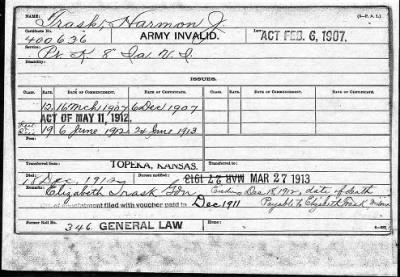 NAME: Trask, Harmon J. (3—P. A. L.)
Certificate No. ARMY INVALID. Law:
400636 ACT FEB. 6, 1907.
Service:
Pv. K. 8" Ia. V. I.
Disability:
ISSUES.
CLASS. RATE. DATE OF COMMENCEMENT. DATE OF CERTIFICATE. CLASS. RATE. DATE OF COMMENCEMENT. DATE OF CERTIFICATE. CLASS. RATE. DATE OF COMMENCEMENT. DATE OF CERTIFICATE.
12 16 Mch 1907 6 Dec 1907
ACT OF MAY 11, 1912.
19 6 June 1912 24 June 1913
Fees:
Transferred from: Transferred to:
TOPEKA, KANSAS.
Died: Bureau notified: MAR 27 1913 MAR 27 1913
18 Dec, 1912
Remarks: Elizabeth Trask Ending Dec 18, 1912, date of death
filed with voucher paid to Dec 1911 Payable to Elizabeth Trask
Former Roll No. Home:
346 GENERAL LAW